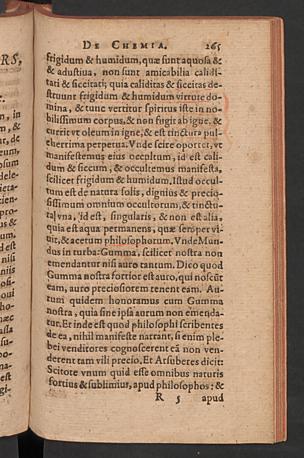 DE CHEMIA. 265
frigidum & humidum, quæ sunt aquosa &
& adustiua, non sunt amicabilia calidi-
tati & siccitati; quia caliditas & siccitas de-
struunt frigidum & humidum virtute do-
mina, & tunc vertitur spiritus iste in no-
bilissimum corpus, & non fugit ab igne, &
currit vt oleum in igne, & est tinctura pul-
cherrima perpetua. Vnde scire oportet, vt
manifestemus eius occultum, id est cali-
dum & siccum, & occultemus manifesta,
scilicet frigidum & humidum. Istud occul-
tum est de natura solis, dignius & precio-
sissimum omnium occultorum, & tinctu-
ra vna, id est, singularis, & non est alia,
quia est aqua permanens, quæ semper vi-
uit, & acetum philosophorum. Vnde Mun-
dus in turba: Gumma, scilicet nostra non
emendantur nisi auro tantum. Dico quod
Gumma nostra fortior est auro, qui noscũt
eam, auro preciosiorem tenent eam. Au-
rum quidem honoramus cum Gumma
nostra, quia sine ipsa aurum non emenda-
tur. Et inde est quod philosophi scribentes
de ea, nihil manifeste narrant, si enim ple-
bei venditores cognoscerent eã non ven-
derent tam vili precio. Et Arsuberes dicit:
Scitote vnum quid esse omnibus naturis
fortius & sublimius, apud philosophos: &
R 5 apud